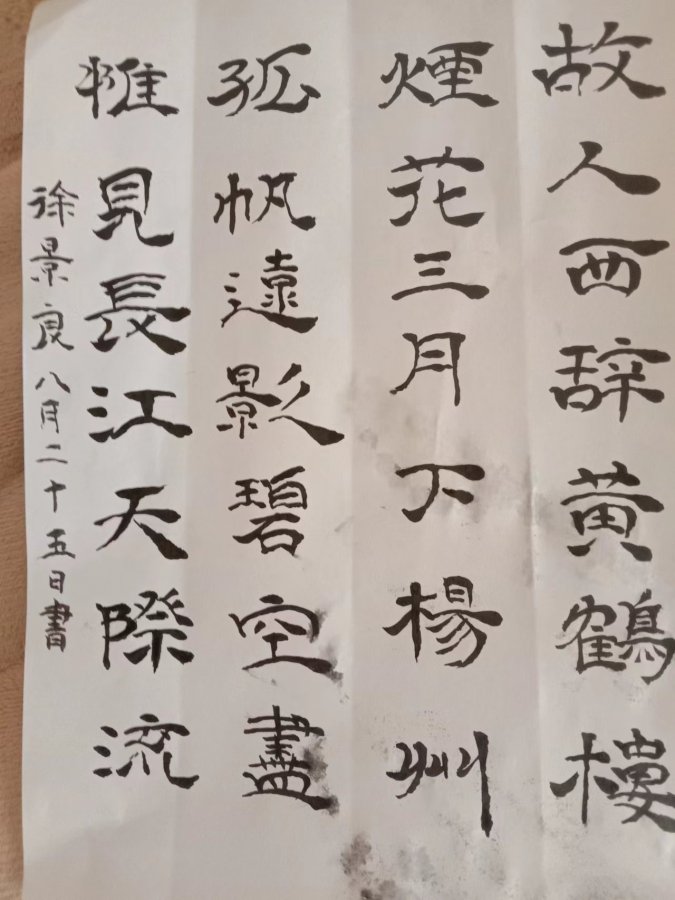 故人西辞黃鶴樓
煙花三月下楊州
孤帆遠影碧空盡
惟見長江天際流
徐景良八月二十五日書